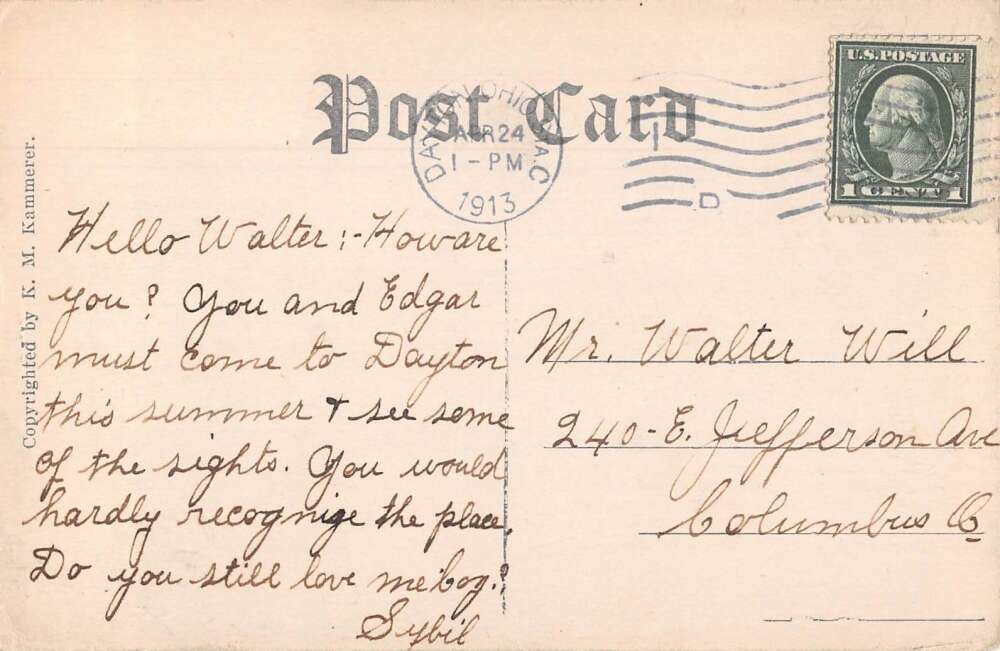 Post Card
DAYTON, OHIO. V.A.C
APR 24
1-PM
1913
D
U.S. POSTAGE
1 CENT 1
Copyrighted by K. M. Kammerer.
Hello Walter:- How are
you? You and Edgar
must come to Dayton
this summer + see some
of the sights. You would
hardly recognize the place.
Do you still love me boy.?
Sybil
Mr. Walter Will
240-E. Jefferson Ave
Columbus O